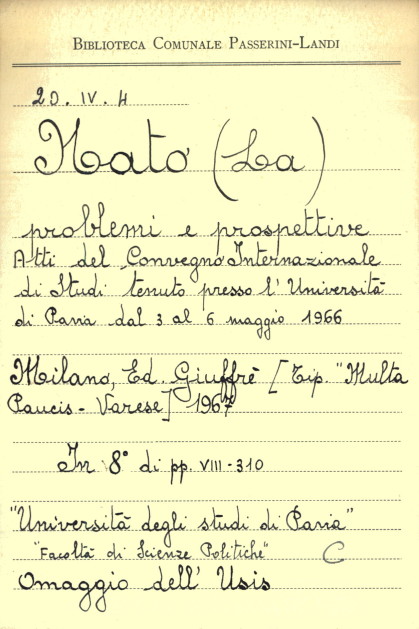 BIBLIOTECA COMUNALE PASSERINI-LANDI
20. IV. 4
Nato (La)
problemi e prospettive
Atti del Convegno Internazionale
di Studi tenuto presso l'Università
di Pavia dal 3 al 6 maggio 1966
Milano, Ed. Giuffrè [Tip. "Multa
Paucis - Varese] 1967
In 8° di pp. VIII-310
"Università degli studi di Pavia"
"Facoltà di Scienze Politiche"
C
Omaggio dell' Usis